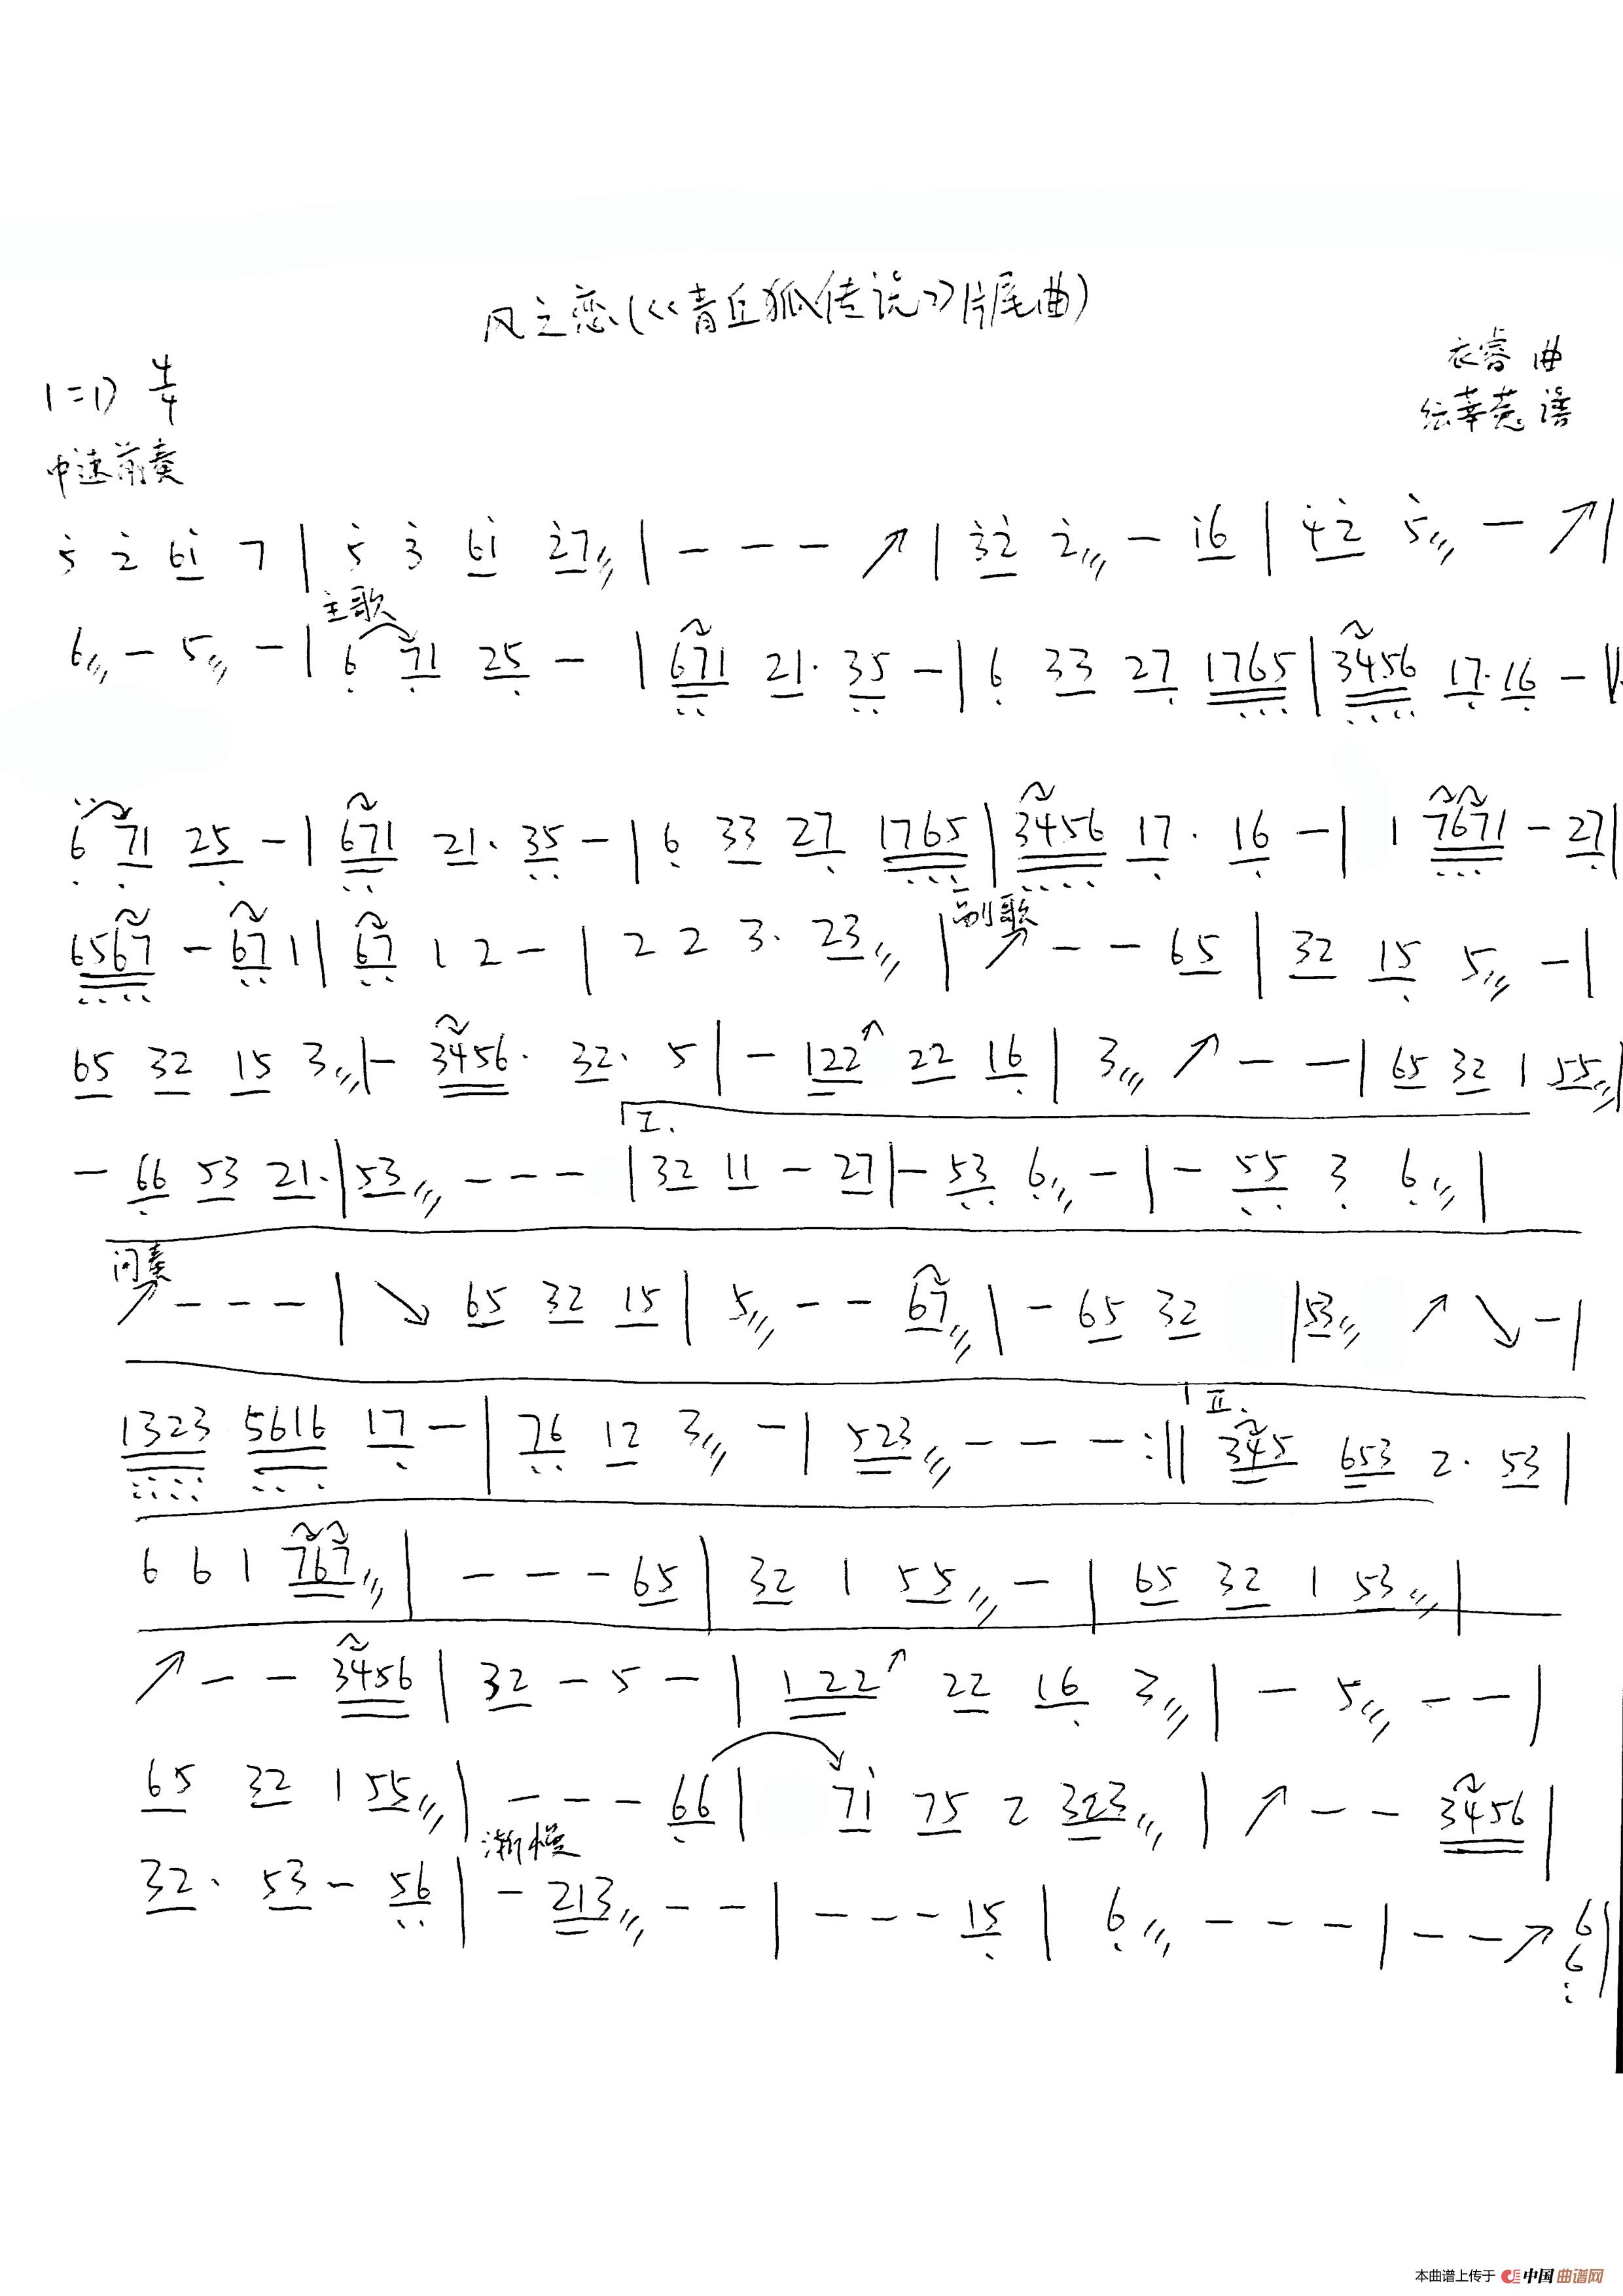 风之恋(<<青丘狐传说>>片尾曲)
衣睿 曲
1=D 4/4
谱
中速前奏
5̇ 2̇ 61̇ 7 | 5̇ 3̇ 61̇ 2̇7/// | - - - ↗ | 3̇2̇ 2̇/// - 1̇6 | 4̇2̇ 5̇/// - ↗ |
主歌
6/// - 5/// - | 6 71 25 - | 671 21· 35 - | 6 33 27 1765 | 3456 17·16 - ||
6 71 25 - | 671 21· 35 - | 6 33 27 1765 | 3456 17· 16 - | 1 7671 - 27 |
副歌
6567 - 67 1 | 67 1 2 - | 2 2 3· 23/// | ↗ - - 65 | 32 15 5/// - |
65 32 15 3/// | - 3456· 32· 5 | - 122↗ 22 16 | 3/// ↗ - - | 65 32 1 55/// |
I.
- 66 53 21· | 53/// - - - | 32 11 - 27 | - 53 6/// - | - 55 3 6/// |
间奏
↗ - - - | ↘ 65 32 15 | 5/// - - 67/// | - 65 32 | 53/// ↗ ↘ - |
II.
1323 5616 17 - | 76 12 3/// - | 523/// - - - :|| 345 653 2· 53 |
6 6 1 767/// | - - - 65 | 32 1 55/// - | 65 32 1 53/// |
↗ - - 3456 | 32 - 5 - | 122↗ 22 16 3/// | - 5/// - - |
65 32 1 55/// | - - - 66 | 71̇ 75 2 323/// | ↗ - - 3456 |
渐慢
32· 53 - 56 | - 213/// - - | - - - 15 | 6/// - - - | - - ↗ 6 |
6
本曲谱上传于 中国曲谱网